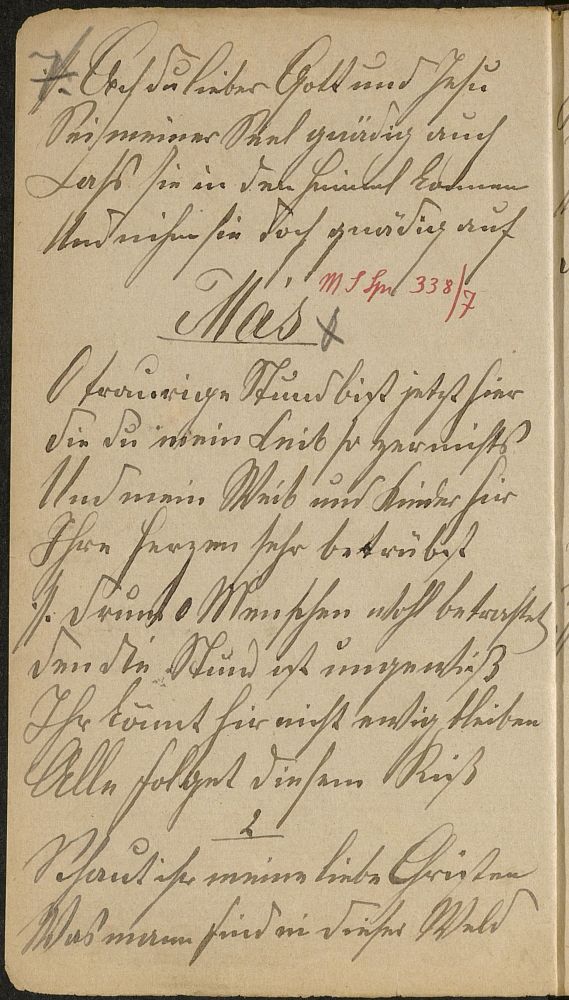 7. Ach du lieber Gott und Jesu
Sei meiner Seel gnädig auch
Lass sie in den Himmel kommen
Und nihm sie doch gnädig auf
M S Sp 338/7
Mas
O traurige Stund bist jetzt hier
die du mein Leib so zernichts
Und mein Weib und Kinder hir
Ihre Herzen sehr betrübst
:/: Drum o Menschen wohl betrachtet
den die Stund ist ungewiß
Ihr könnt hir nicht ewig bleiben
Alle folget diesem Riß
2
Schaut ihr meine liebe Christen
Was mann find in dieser Weld